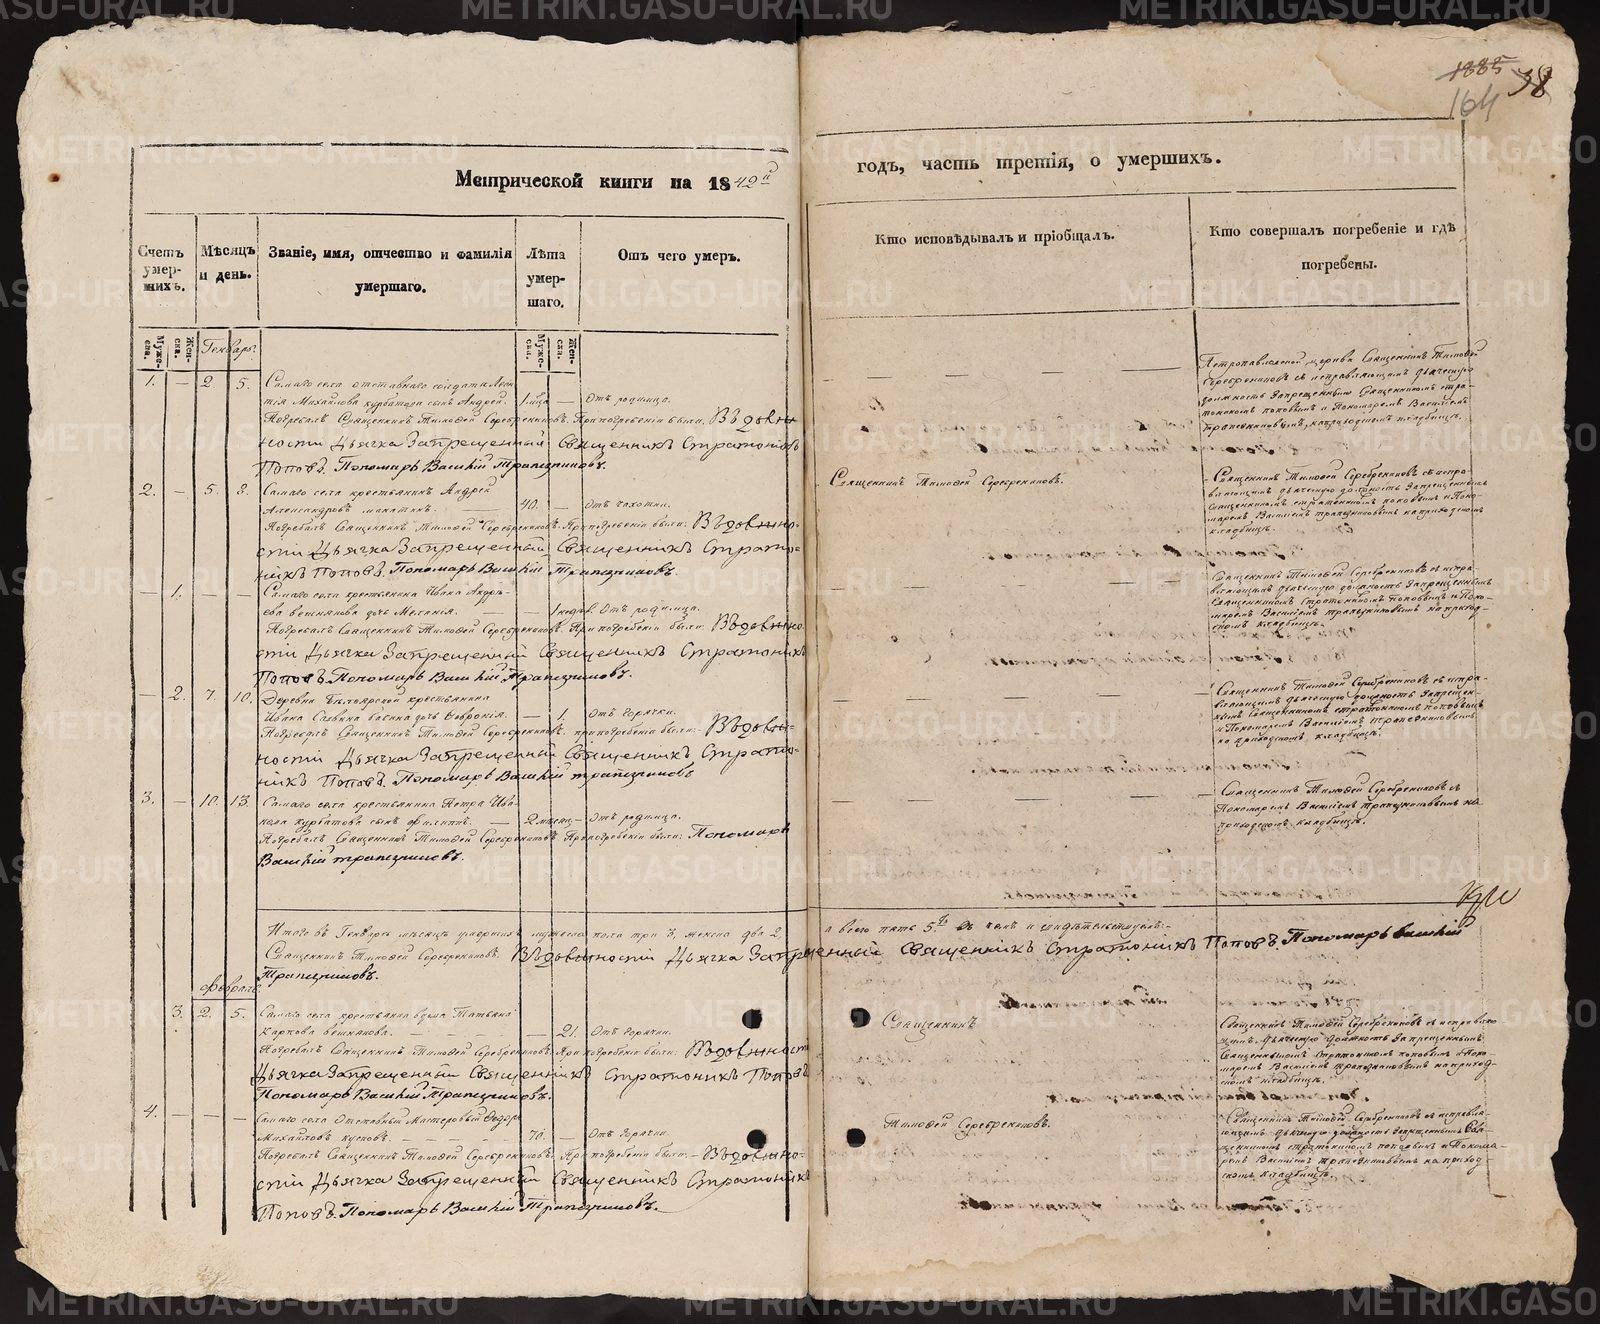 1885 38
164
Метрической книги на 1842й годъ, часть третія, о умершихъ.
Счетъ умер-шихъ.
Мѣсяцъ и день.
Званіе, имя, отчество и фамилія умершаго.
Лѣта умер-шаго.
Отъ чего умеръ.
Кто исповѣдывалъ и пріобщалъ.
Кто совершалъ погребеніе и гдѣ погребены.
Муже-ска. Жен-ска. Генварь. Муже-ска. Жен-ска.
1. — 2. 5. Самаго села отставнаго солдата
Михайлова Курбатова сынъ Андрей. 1 мѣсяца — Отъ родимца.
Погребалъ Священникъ Тимофей Серебренниковъ. При погребеніи были: Въ должно-
ности Дьячка Запрещенный Священникъ Стратоникъ
Поповъ. Пономарь Василій Трапезниковъ.
Петропавловской церкви Священникъ Тимофей
Серебренниковъ съ исправляющимъ дьяческую
должность Запрещеннымъ Священникомъ Стра-
тоникомъ Поповымъ и Пономаремъ Василіемъ
Трапезниковымъ, на приходскомъ кладбищѣ.
2. — 5. 8. Самаго села крестьянинъ Андрей
Александровъ 40. — Отъ чахотки.
Погребалъ Священникъ Тимофей Серебренниковъ. При погребеніи были: Въ должно-
сти Дьячка Запрещенный Священникъ Страто-
никъ Поповъ. Пономарь Василій Трапезниковъ.
Священникъ Тимофей Серебренниковъ.
Священникъ Тимофей Серебренниковъ съ испра-
вляющимъ дьяческую должность Запрещеннымъ
Священникомъ Стратоникомъ Поповымъ и Поно-
маремъ Василіемъ Трапезниковымъ на приходскомъ
кладбищѣ.
— 1. — — Самаго села крестьянина Ивана Андрѣ-
ева дочь Меланія. — 1 недѣл. Отъ родимца.
Погребалъ Священникъ Тимофей Серебренниковъ. При погребеніи были: Въ должно-
сти Дьячка Запрещенный Священникъ Стратоникъ
Поповъ. Пономарь Василій Трапезниковъ.
Священникъ Тимофей Серебренниковъ съ испра-
вляющимъ дьяческую должность Запрещеннымъ
Священникомъ Стратоникомъ Поповымъ и Поно-
маремъ Василіемъ Трапезниковымъ на приход-
скомъ кладбищѣ.
— 2. 7. 10. Деревни крестьянина
Ивана Савина дочь Февронія. — 1. Отъ горячки.
Погребалъ Священникъ Тимофей Серебренниковъ. При погребеніи были: Въ долж-
ности Дьячка Запрещенный Священникъ Страто-
никъ Поповъ. Пономарь Василій Трапезниковъ
Священникъ Тимофей Серебренниковъ съ испра-
вляющимъ дьяческую должность Запрещен-
нымъ Священникомъ Стратоникомъ Поповымъ
и Пономаремъ Василіемъ Трапезниковымъ
на приходскомъ кладбищѣ.
3. — 10. 13. Самаго села крестьянина Петра Ива-
нова Курбатова сынъ Филиппъ. — 2 мѣсяц. — Отъ родимца.
Погребалъ Священникъ Тимофей Серебренниковъ. При погребеніи были: Пономарь
Василій Трапезниковъ.
Священникъ Тимофей Серебренниковъ съ
Пономаремъ Василіемъ Трапезниковымъ на
приходскомъ кладбищѣ.
Итого въ Генварѣ мѣсяцѣ умершихъ мужеска пола три 3, женска два 2, а всего пять 5ть. Въ чемъ и свидѣтельствуемъ:
Священникъ Тимофей Серебренниковъ. Въ должности Дьячка Запрещенный Священникъ Стратоникъ Поповъ. Пономарь Василій
Трапезниковъ.
Февраль.
3. 2. 5. Самаго села крестьянина вдова Татьяна
Карпова — 21. Отъ горячки.
Погребалъ Священникъ Тимофей Серебренниковъ. При погребеніи были: Въ должности
Дьячка Запрещенный Священникъ Стратоникъ Поповъ
Пономарь Василій Трапезниковъ.
Священникъ
Священникъ Тимофей Серебренниковъ съ исправляю-
щимъ дьяческую должность Запрещеннымъ
Священникомъ Стратоникомъ Поповымъ и Поно-
маремъ Василіемъ Трапезниковымъ на приход-
скомъ кладбищѣ.
4. — — — Самаго села Отставный Мастеровый Федоръ
Михайловъ 70. — Отъ горячки.
Погребалъ Священникъ Тимофей Серебренниковъ. При погребеніи были: — Въ должно-
сти Дьячка Запрещенный Священникъ Стратоникъ
Поповъ. Пономарь Василій Трапезниковъ.
Тимофей Серебренниковъ.
Священникъ Тимофей Серебренниковъ съ исправля-
ющимъ дьяческую должность Запрещеннымъ Свя-
щенникомъ Стратоникомъ Поповымъ и Понома-
ремъ Василіемъ Трапезниковымъ на приход-
скомъ кладбищѣ.
METRIKI.GASO-URAL.RU